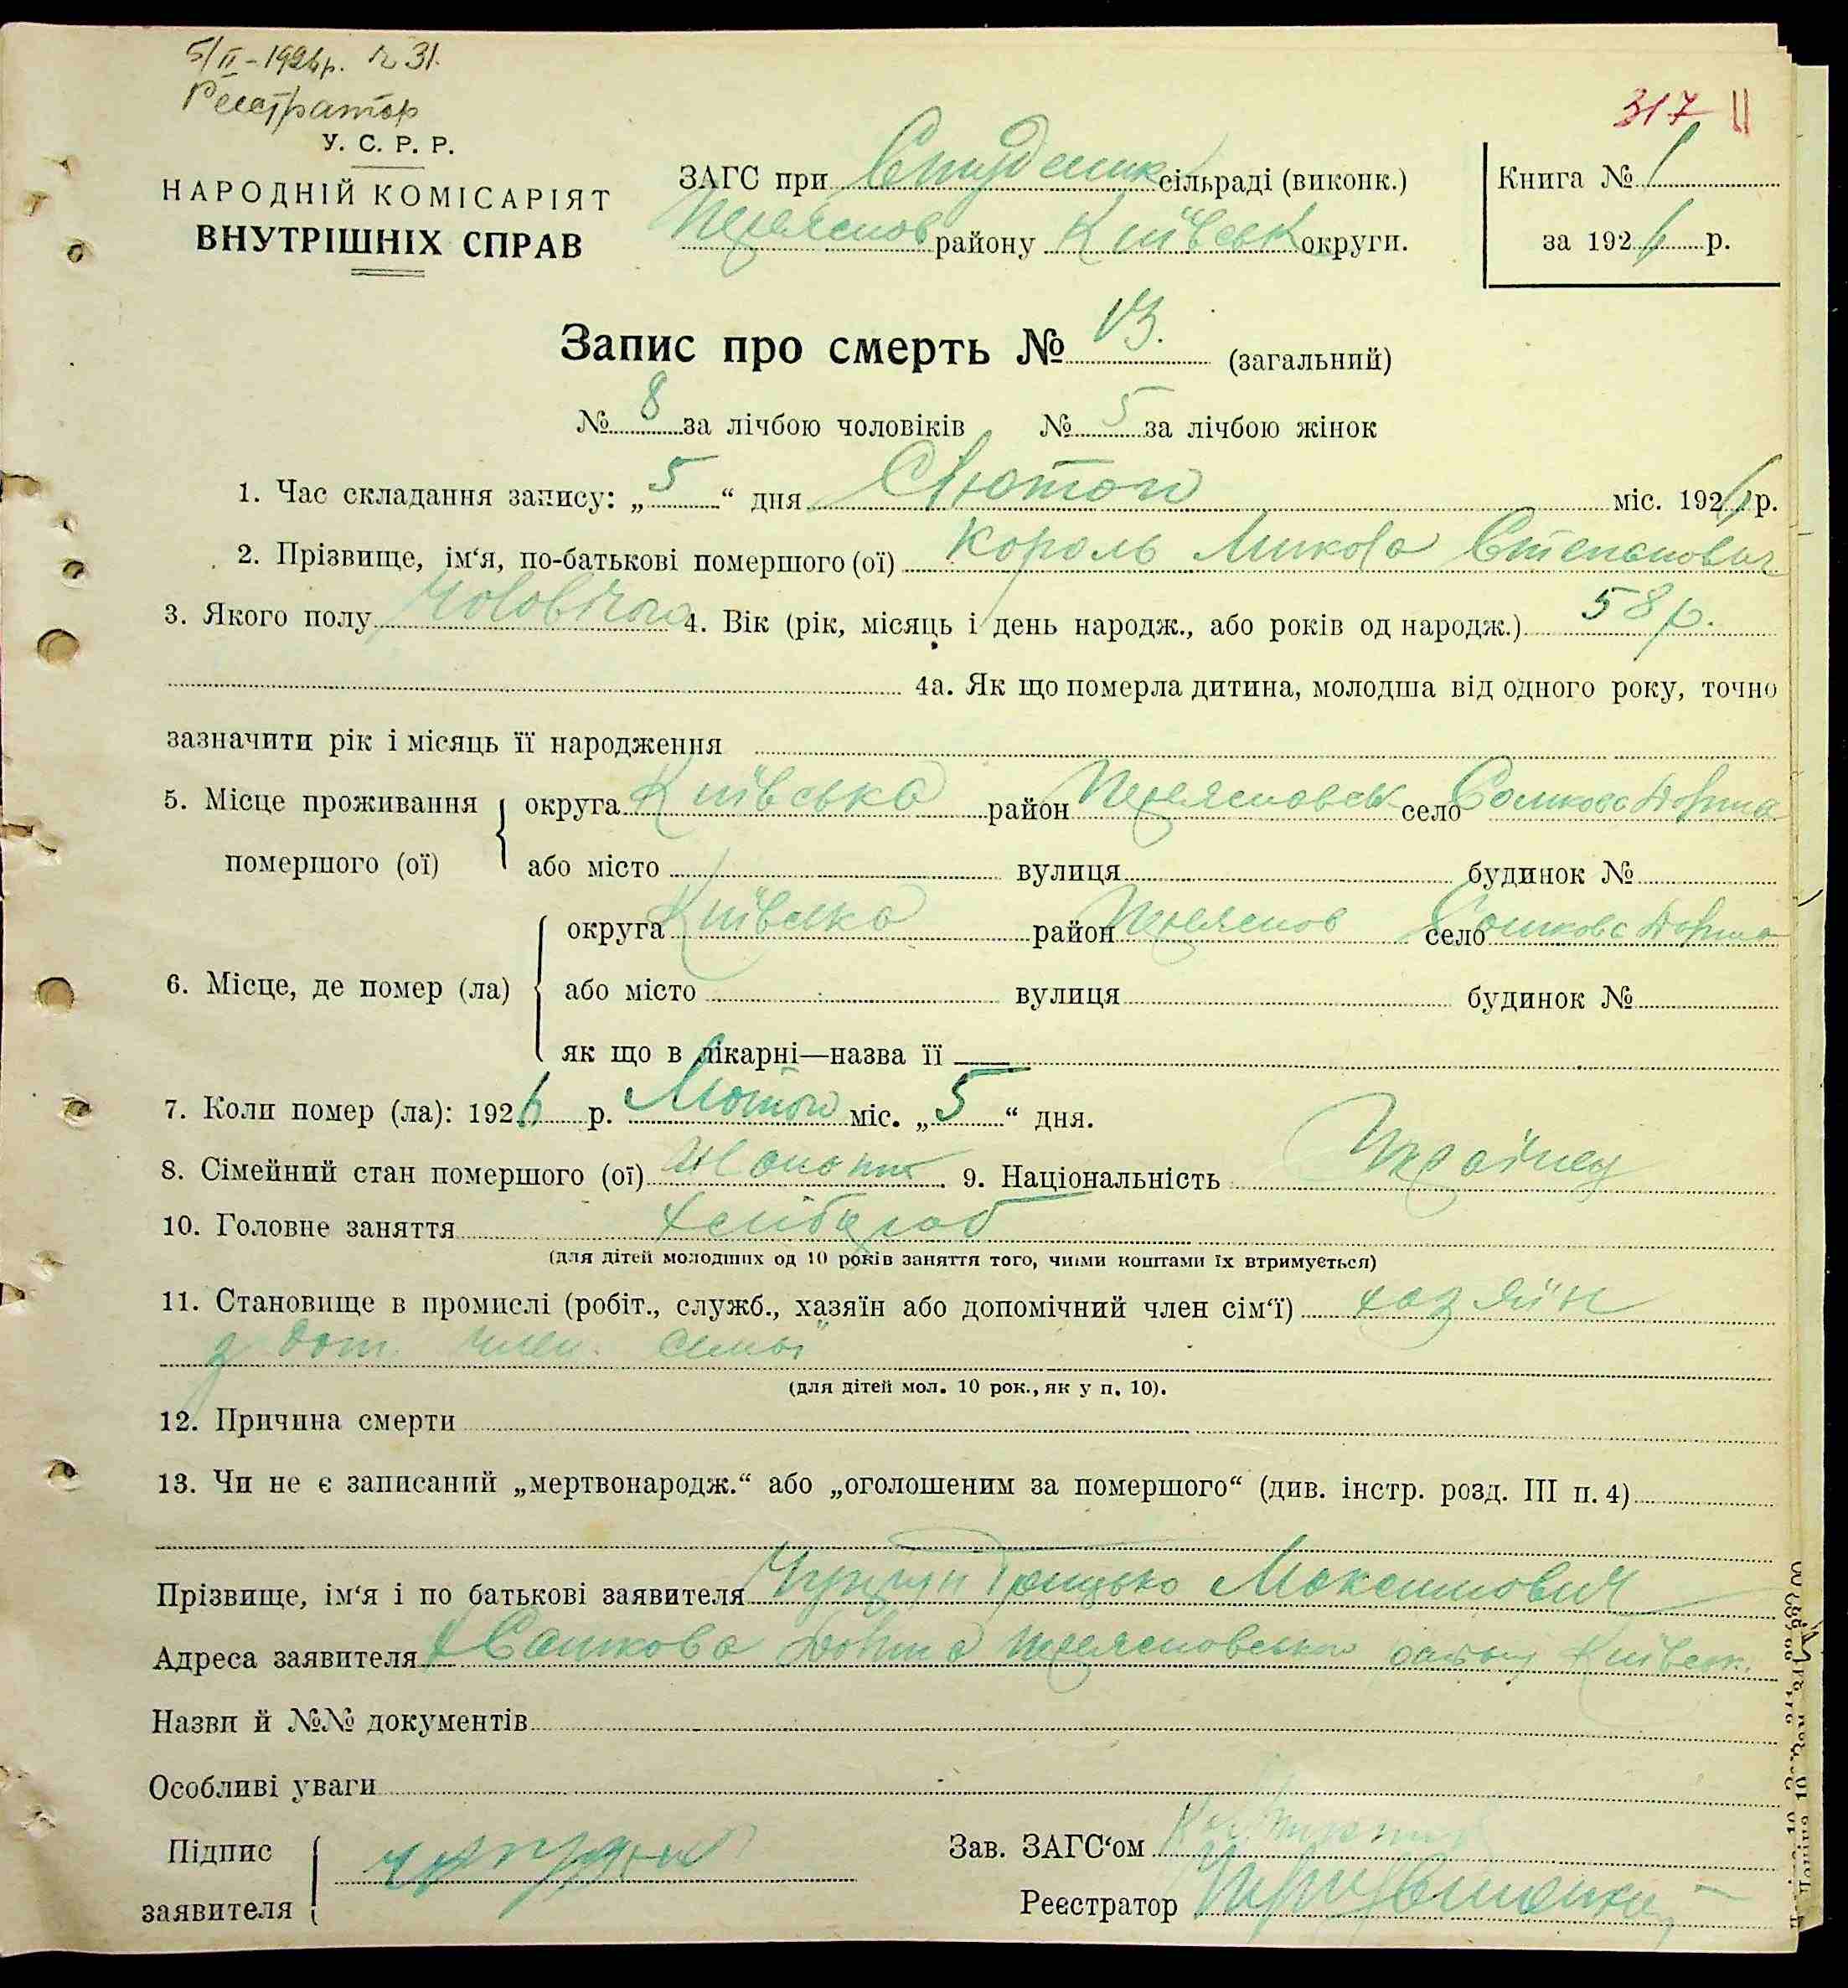 5/II-1926р. № 31.
Реєстратор
У. С. Р. Р.
НАРОДНІЙ КОМІСАРІЯТ
ВНУТРІШНІХ СПРАВ
317 11
ЗАГС при Студеник сільраді (виконк.)
Переяслов району Київськ округи.
Книга № 1
за 1926 р.
Запис про смерть № 13. (загальний)
№ 8 за лічбою чоловіків № 5 за лічбою жінок
1. Час складання запису: „5“ дня Лютого міс. 1926 р.
2. Прізвище, ім‘я, по-батькові помершого (ої) Король Микола Степанович
3. Якого полу Чоловічого 4. Вік (рік, місяць і день народж., або років од народж.) 58 р.
4а. Як що померла дитина, молодша від одного року, точно
зазначити рік і місяць її народження
5. Місце проживання помершого (ої) округа Київська район Переясловськ село Сомкова Долина
або місто вулиця будинок №
6. Місце, де помер (ла) округа Київська район Переяслов село Сомкова Долина
або місто вулиця будинок №
як що в лікарні—назва її —
7. Коли помер (ла): 1926 р. Лютого міс. „5“ дня.
8. Сімейний стан помершого (ої) Жонат 9. Національність Українец
10. Головне заняття хлібороб
(для дітей молодших од 10 років заняття того, чиїми коштами їх втримується)
11. Становище в промислі (робіт., служб., хазяїн або допомічний член сім‘ї) хазяїн
з доп. член. семьї
(для дітей мол. 10 рок., як у п. 10).
12. Причина смерти
13. Чи не є записаний „мертвонародж.“ або „оголошеним за помершого“ (див. інстр. розд. III п. 4)
Прізвище, ім‘я і по батькові заявителя Грицько Максимович
Адреса заявителя х Сомкова Долина Переясловського району Київськ.
Назви й №№ документів
Особливі уваги
Підпис заявителя
Зав. ЗАГС‘ом
Реєстратор